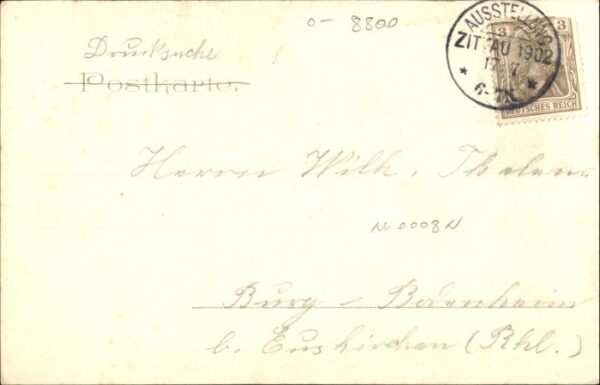 0- 8800
AUSSTELLUNG
ZITTAU 1902
17 7
* 6-7N. *
3 3
DEUTSCHES REICH
Drucksache
Postkarte.
Herrn Wilh. Thelen
N0008N
Burg - Bodenheim
b. Euskirchen (Rhl.)